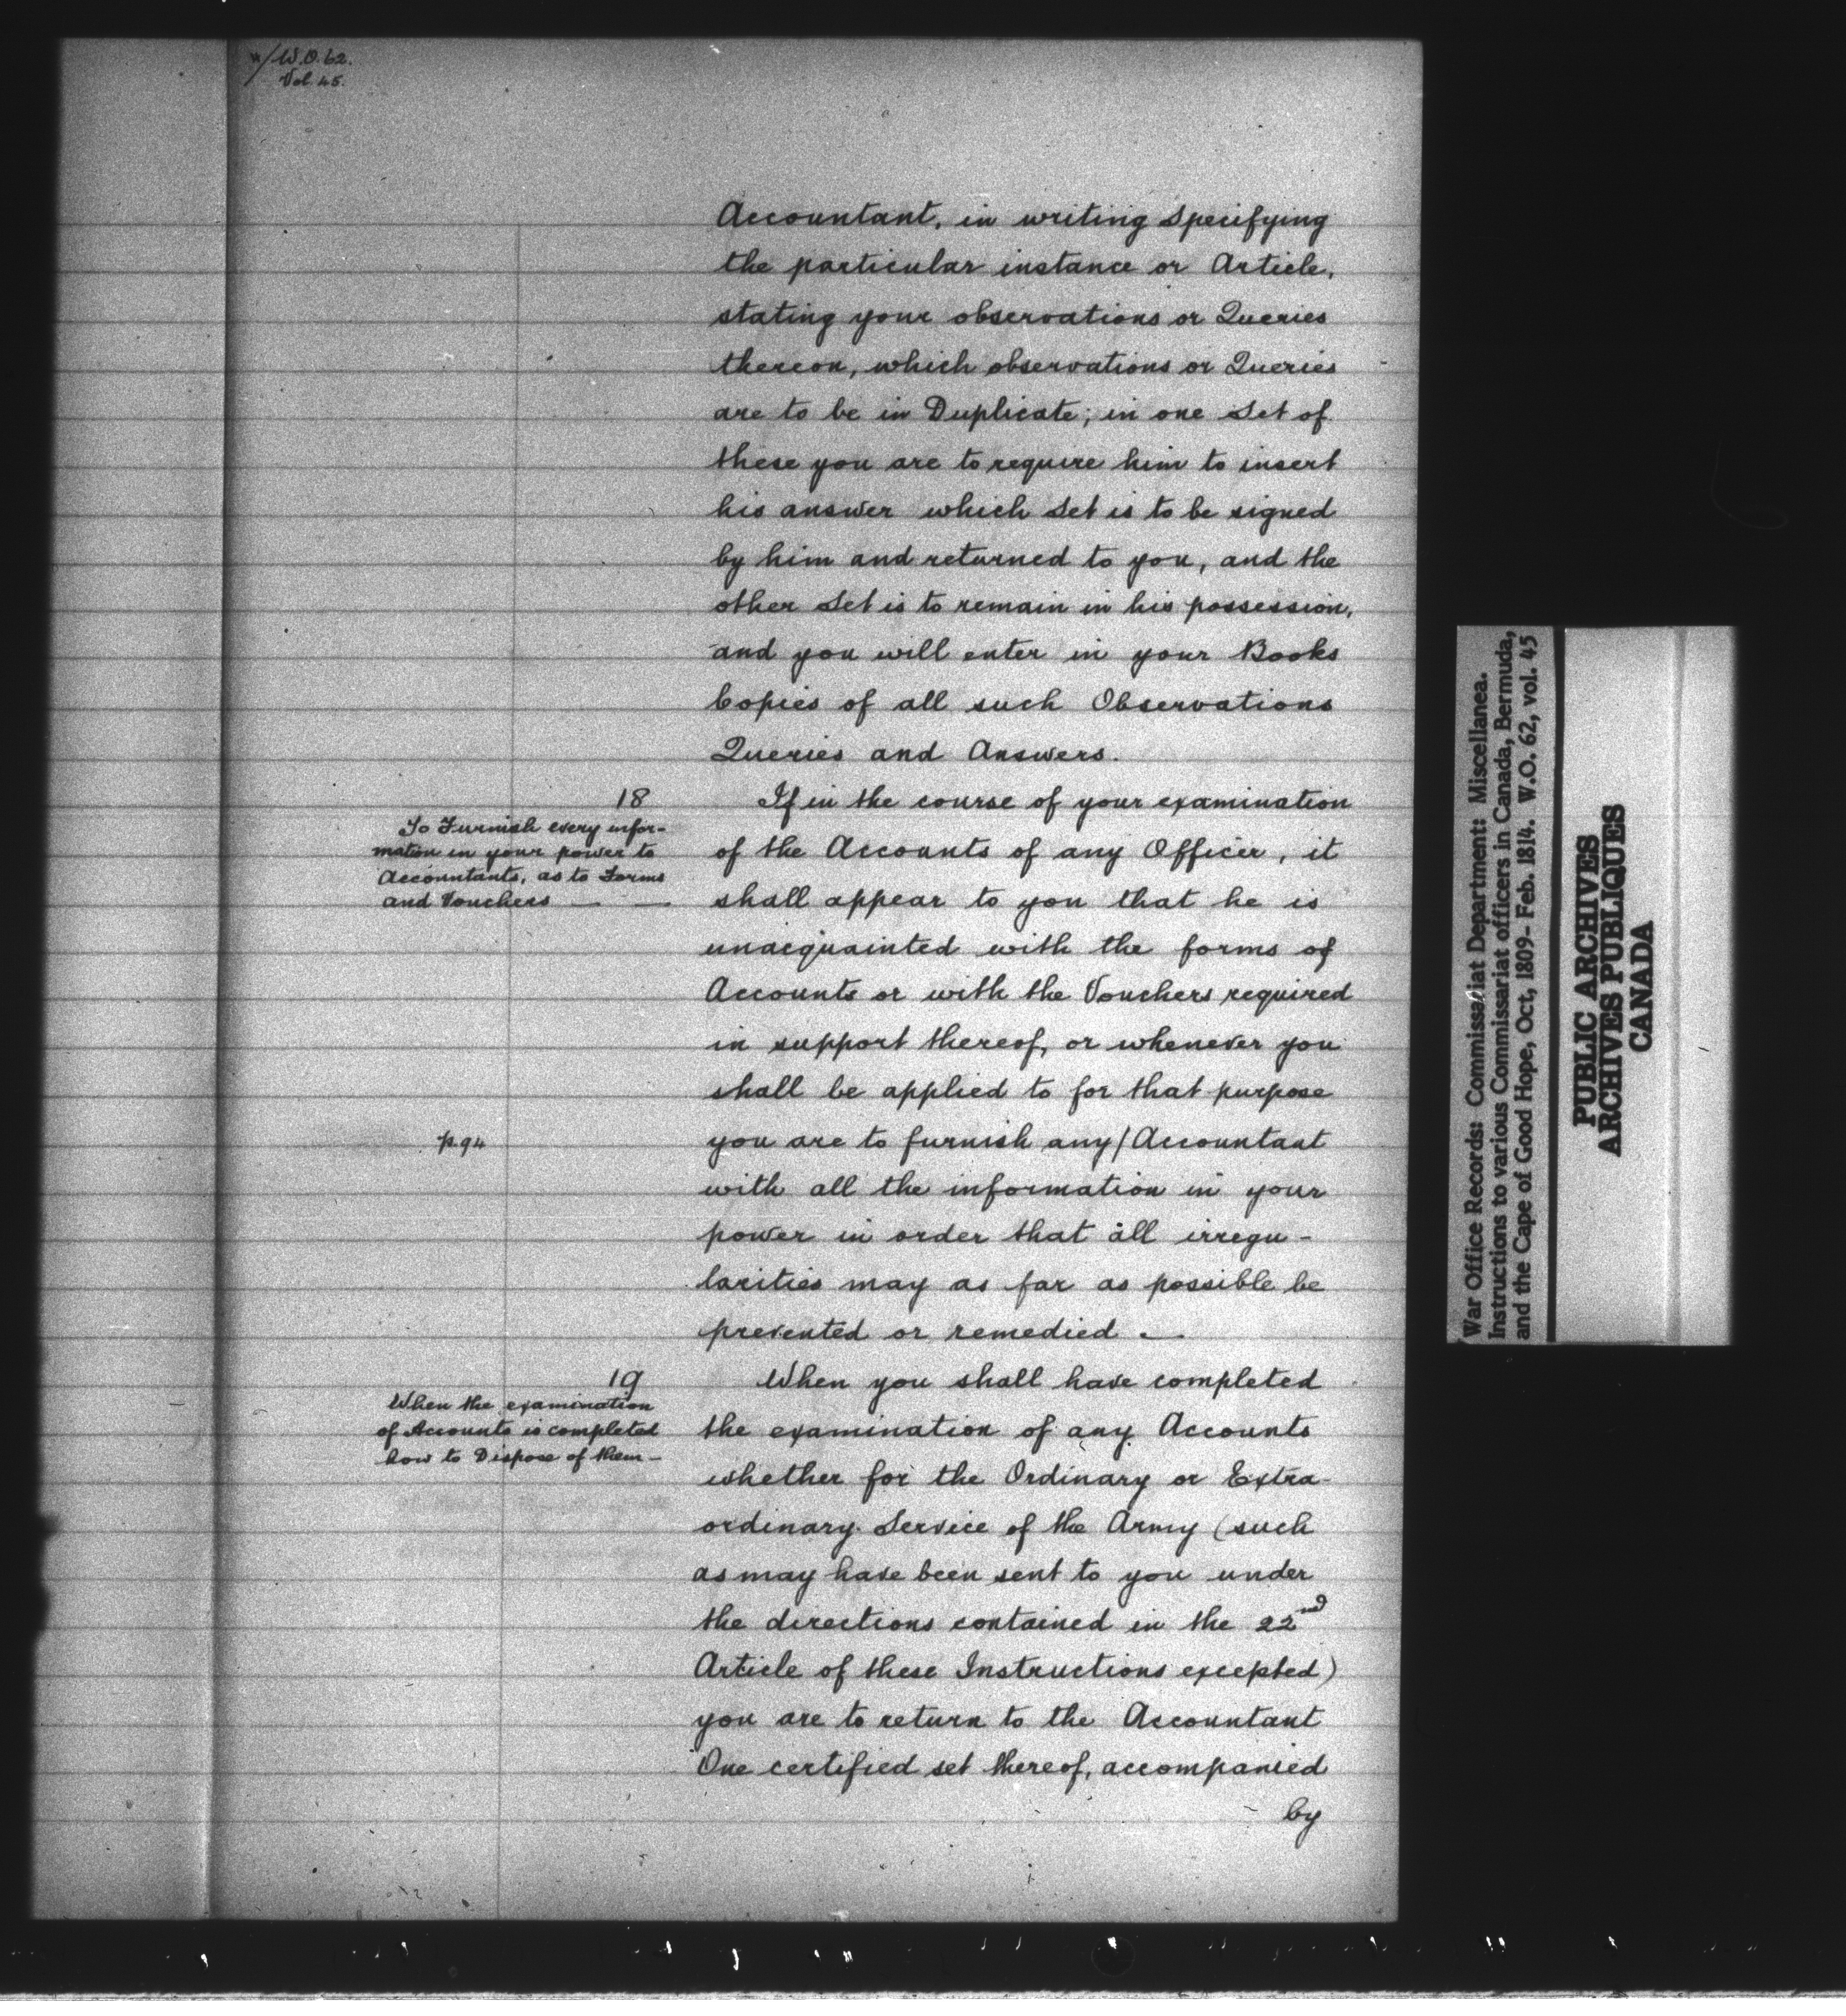 W.O. 62.
Vol. 45.
Accountant, in writing specifying
the particular instance or Article,
stating your observations or Queries
thereon, which observations or Queries
are to be in Duplicate; in one Set of
these you are to require him to insert
his answer which Set is to be signed
by him and returned to you, and the
other Set is to remain in his possession,
and you will enter in your Books
Copies of all such Observations
Queries and Answers.
18
To Furnish every infor-
mation in your power to
Accountants, as to Forms
and Vouchers — —
If in the course of your examination
of the Accounts of any Officer, it
shall appear to you that he is
unacquainted with the forms of
Accounts or with the Vouchers required
in support thereof, or whenever you
shall be applied to for that purpose
p. 94
you are to furnish any / Accountant
with all the information in your
power in order that all irregu-
larities may as far as possible be
prevented or remedied. —
19
When the examination
of Accounts is completed
how to Dispose of them —
When you shall have completed
the examination of any Accounts
whether for the Ordinary or Extra-
ordinary Service of the Army (such
as may have been sent to you under
the directions contained in the 22nd
Article of these Instructions excepted)
you are to return to the Accountant
One certified set thereof, accompanied
by
War Office Records: Commissariat Department: Miscellanea.
Instructions to various Commissariat officers in Canada, Bermuda,
and the Cape of Good Hope, Oct, 1809- Feb. 1814. W.O. 62, vol. 45
PUBLIC ARCHIVES
ARCHIVES PUBLIQUES
CANADA